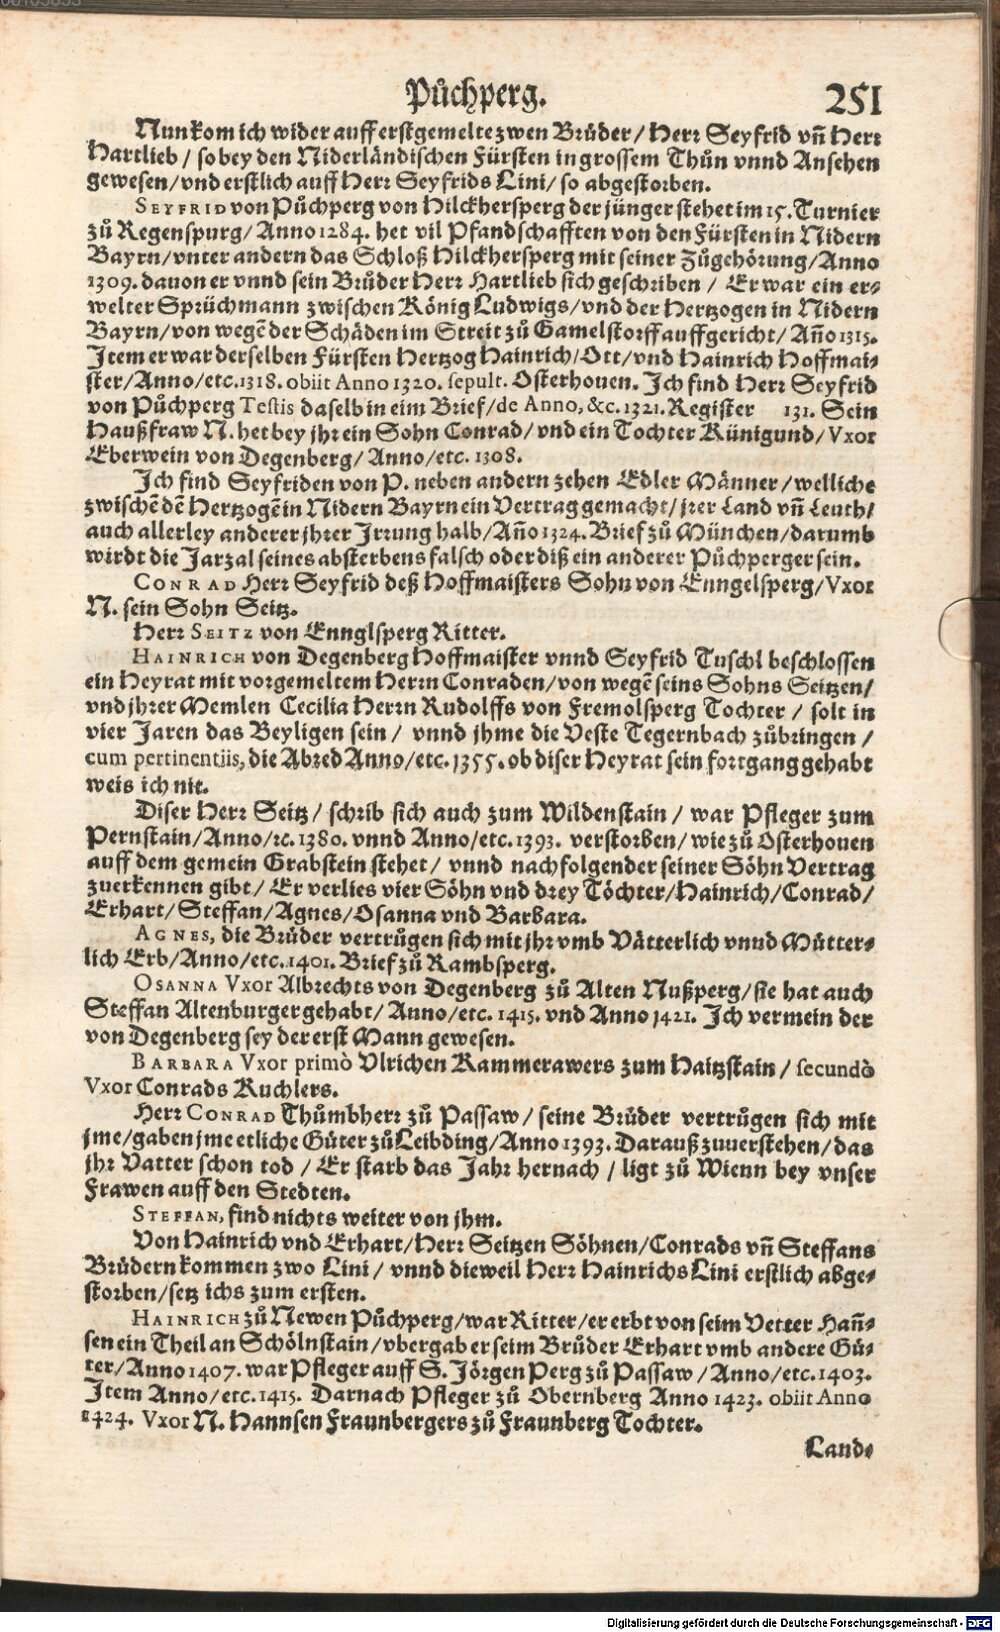 Půchperg. 251
Nun kom ich wider auff erstgemelte zwen Brüder / Herr Seyfrid vñ Herr
Hartlieb / so bey den Niderländischen Fürsten in grossem Thůn vnnd Ansehen
gewesen / vnd erstlich auff Herr Seyfrids Lini / so abgestorben.
SEYFRID von Půchperg von Hilckhersperg der jünger stehet im 15. Turnier
zů Regenspurg / Anno 1284. het vil Pfandschafften von den Fürsten in Nidern
Bayrn / vnter andern das Schloß Hilckhersperg mit seiner Zůgehörung / Anno
1309. dauon er vnnd sein Brůder Herr Hartlieb sich geschriben / Er war ein er-
welter Sprüchmann zwischen König Ludwigs / vnd der Hertzogen in Nidern
Bayrn / von wegẽ der Schäden im Streit zů Gamelstorff auffgericht / Añо 1315.
Item er war derselben Fürsten Hertzog Hainrich / Ott / vnd Hainrich Hoffmai-
ster / Anno / etc. 1318. obiit Anno 1320. sepult. Osterhouen. Ich find Herr Seyfrid
von Půchperg Testis daselb in eim Brief / de Anno, &c. 1321. Register 131. Sein
Haußfraw N. het bey jhr ein Sohn Conrad / vnd ein Tochter Künigund / Vxor
Eberwein von Degenberg / Anno / etc. 1308.
Ich find Seyfriden von P. neben andern zehen Edler Männer / welliche
zwischẽ dẽ Hertzogẽ in Nidern Bayrn ein Vertrag gemacht / jrer Land vñ Leuth /
auch allerley anderer jhrer Irrung halb / Añо 1324. Brief zů München / darumb
wirdt die Jarzal seines absterbens falsch oder diß ein anderer Půchperger sein.
CONRAD Herr Seyfrid deß Hoffmaisters Sohn von Enngelsperg / Vxor
N. sein Sohn Seitz.
Herr SEITZ von Ennglsperg Ritter.
HAINRICH von Degenberg Hoffmaister vnnd Seyfrid Tuschl beschlossen
ein Heyrat mit vorgemeltem Herrn Conraden / von wegẽ seins Sohns Seitzen /
vnd jhrer Memlen Cecilia Herrn Rudolffs von Fremolsperg Tochter / solt in
vier Jaren das Beyligen sein / vnnd jhme die Veste Tegernbach zůbringen /
cum pertinentiis, die Abred Anno / etc. 1355. ob diser Heyrat sein fortgang gehabt
weis ich nit.
Diser Herr Seitz / schrib sich auch zum Wildenstain / war Pfleger zum
Pernstain / Anno / ꝛc. 1380. vnnd Anno / etc. 1393. verstorben / wie zů Osterhouen
auff dem gemein Grabstein stehet / vnnd nachfolgender seiner Söhn Vertrag
zuerkennen gibt / Er verlies vier Söhn vnd drey Töchter / Hainrich / Conrad /
Erhart / Steffan / Agnes / Osanna vnd Barbara.
AGNES, die Brüder vertrůgen sich mit jhr vmb Vätterlich vnnd Můtter-
lich Erb / Anno / etc. 1401. Brief zů Rambsperg.
OSANNA Vxor Albrechts von Degenberg zů Alten Nußperg / sie hat auch
Steffan Altenburger gehabt / Anno / etc. 1415. vnd Anno 1421. Ich vermein der
von Degenberg sey der erst Mann gewesen.
BARBARA Vxor primò Vlrichen Kammerawers zum Haitzstain / secundò
Vxor Conrads Kuchlers.
Herr CONRAD Thůmbherr zů Passaw / seine Brüder vertrůgen sich mit
jme / gaben jme etliche Güter zů Leibding / Anno 1393. Darauß zuuerstehen / das
jhr Vatter schon tod / Er starb das Jahr hernach / ligt zů Wienn bey vnser
Frawen auff den Stedten.
STEFFAN, find nichts weiter von jhm.
Von Hainrich vnd Erhart / Herr Seitzen Söhnen / Conrads vñ Steffans
Brüdern kommen zwo Lini / vnnd dieweil Herr Hainrichs Lini erstlich abge-
storben / setz ichs zum ersten.
HAINRICH zů Newen Půchperg / war Ritter / er erbt von seim Vetter Hañ-
sen ein Theil an Schölnstain / vbergab er seim Brůder Erhart vmb andere Gü-
ter / Anno 1407. war Pfleger auff S. Jörgen Perg zů Passaw / Anno / etc. 1403.
Item Anno / etc. 1415. Darnach Pfleger zů Obernberg Anno 1423. obiit Anno
1424. Vxor N. Hannsen Fraunbergers zů Fraunberg Tochter.
Land-
Digitalisierung gefördert durch die Deutsche Forschungsgemeinschaft - DFG